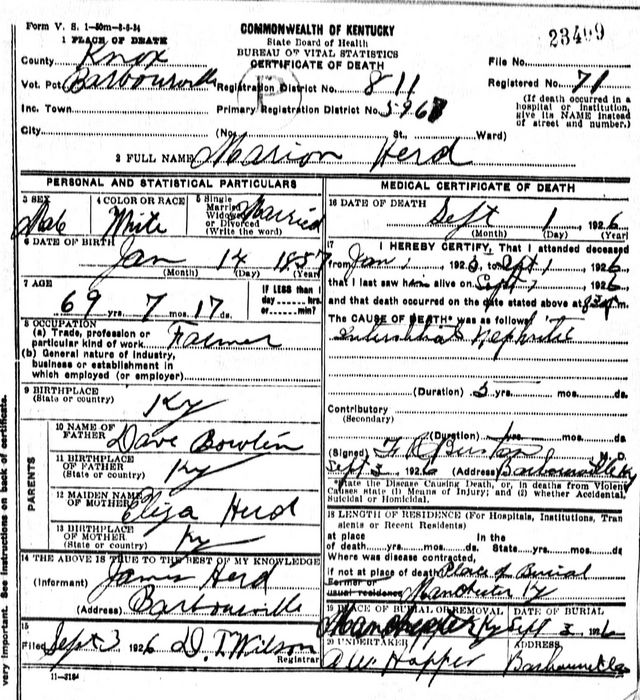 Form V. S. 1-50m-8-8-24
COMMONWEALTH OF KENTUCKY
State Board of Health
BUREAU OF VITAL STATISTICS
CERTIFICATE OF DEATH
23499
1 PLACE OF DEATH
County Knox
File No.
Vot. Pct Barbourville
Registration District No. 811
Registered No. 71
P
Inc. Town
Primary Registration District No. 5967
(If death occurred in a hospital or institution, give its NAME instead of street and number.)
City (No. St., Ward)
2 FULL NAME Marion Herd
PERSONAL AND STATISTICAL PARTICULARS
3 SEX Male
4 COLOR OR RACE White
5 Single Married Widowed or Divorced (Write the word) Married
6 DATE OF BIRTH
Jan 14 1857
(Month) (Day) (Year)
7 AGE
69 yrs. 7 mos. 17 ds.
IF LESS than 1 day hrs. or min?
8 OCCUPATION
(a) Trade, profession or particular kind of work Farmer
(b) General nature of industry, business or establishment in which employed (or employer)
9 BIRTHPLACE
(State or country) Ky
PARENTS
10 NAME OF FATHER Dave Bowlin
11 BIRTHPLACE OF FATHER
(State or country) Ky
12 MAIDEN NAME OF MOTHER Eliza Herd
13 BIRTHPLACE OF MOTHER
(State or country) Ky
14 THE ABOVE IS TRUE TO THE BEST OF MY KNOWLEDGE
(Informant) James Herd
(Address) Barbourville
15
Filed Sept 3 1926 D. T. Wilson
Registrar
11-3184
MEDICAL CERTIFICATE OF DEATH
16 DATE OF DEATH
Sept 1 1926
(Month) (Day) (Year)
17 I HEREBY CERTIFY, That I attended deceased
from Jan 1 192 to Sept 1 1926
that I last saw him alive on Sept 1926
and that death occurred on the date stated above at m.
The CAUSE OF DEATH* was as follows
Interstitial Nephritis
(Duration) 5 yrs. mos. ds.
Contributory
(Secondary)
(Duration) yrs. mos. ds.
(Signed) M. D.
Sept 3 1926 (Address) Barbourville Ky
*State the Disease Causing Death, or, in deaths from Violent Causes state (1) Means of Injury; and (2) whether Accidental, Suicidal or Homicidal.
18 LENGTH OF RESIDENCE (For Hospitals, Institutions, Transients or Recent Residents)
At place of death yrs. mos. ds. In the State yrs. mos. ds.
Where was disease contracted,
if not at place of death Place of Burial
Former or usual residence Manchester Ky
19 PLACE OF BURIAL OR REMOVAL DATE OF BURIAL
Manchester Ky Sept 3 1926
20 UNDERTAKER ADDRESS
A W Hopper Barbourville
very important. See instructions on back of certificate.